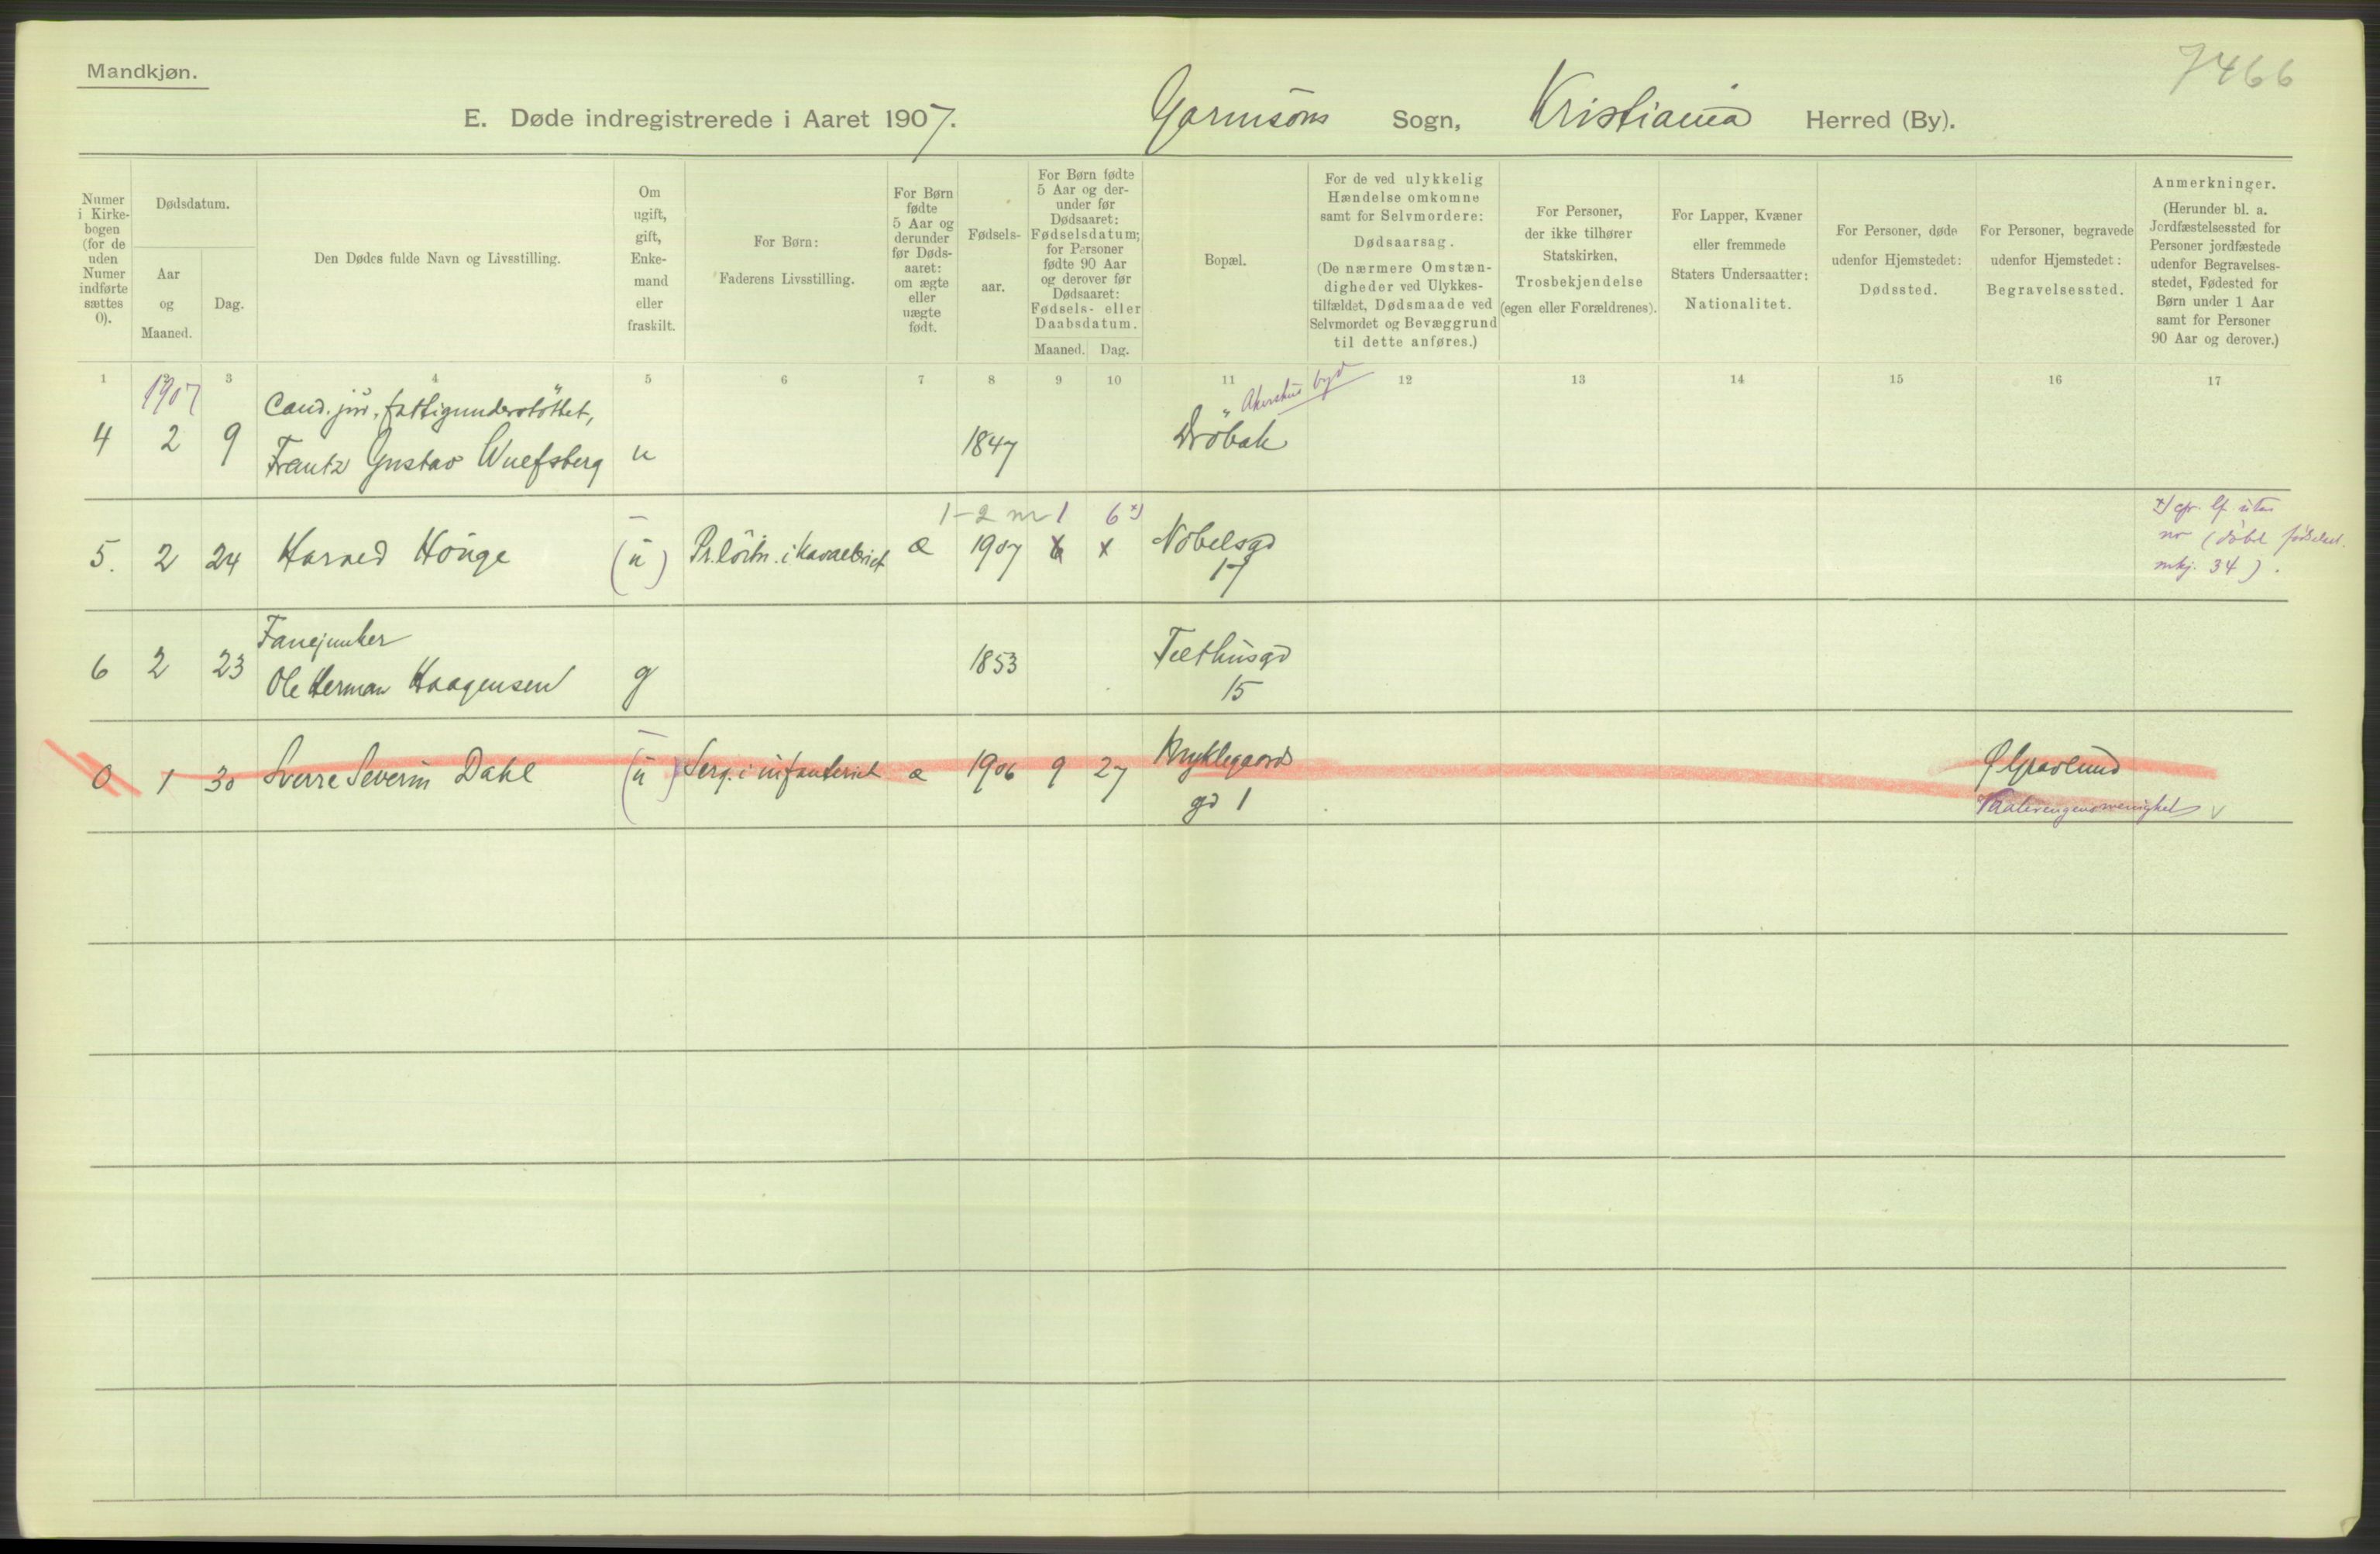 Mandkjøn.
7466
E. Døde indregistrerede i Aaret 1907. Garnisons Sogn, Kristiania Herred (By).
Numer i Kirkebogen (for de uden Numer indførte sættes 0).
Dødsdatum.
Aar og Maaned.
Dag.
Den Dødes fulde Navn og Livsstilling.
Om ugift, gift, Enkemand eller fraskilt.
For Børn: Faderens Livsstilling.
For Børn fødte 5 Aar og derunder før Dødsaaret: om ægte eller uægte født.
Fødselsaar.
For Børn fødte 5 Aar og derunder før Dødsaaret: Fødselsdatum; for Personer fødte 90 Aar og derover før Dødsaaret: Fødsels- eller Daabsdatum.
Maaned. Dag.
Bopæl.
For de ved ulykkelig Hændelse omkomne samt for Selvmordere: Dødsaarsag. (De nærmere Omstændigheder ved Ulykkestilfældet, Dødsmaade ved Selvmordet og Bevæggrund til dette anføres.)
For Personer, der ikke tilhører Statskirken, Trosbekjendelse (egen eller Forældrenes).
For Lapper, Kvæner eller fremmede Staters Undersaatter: Nationalitet.
For Personer, døde udenfor Hjemstedet: Dødssted.
For Personer, begravede udenfor Hjemstedet: Begravelsessted.
Anmerkninger. (Herunder bl. a. Jordfæstelsessted for Personer jordfæstede udenfor Begravelsesstedet, Fødested for Børn under 1 Aar samt for Personer 90 Aar og derover.)
1 2 3 4 5 6 7 8 9 10 11 12 13 14 15 16 17
1907 Cand. jur, fattigunderstöttet, Akershus
4 2 9 Frantz Gustav Wuefsberg u 1847 Dröbak
1-2 1 6 x)
5. 2 24 Harald Houge (u) Pr.löitn. i Kavaleriet æ 1907 6 x Nobelsgd
17
(dobt fødselsl.
mkj. 34).
Fanejunker
6 2 23 Ole Herman Haagensen g 1853 Telthusgd
15
0 1 30 Sverre Severin Dahl (u) Serg. i infanteriet æ 1906 9 27 Bryklegaards
gd 1
Ø Gravlund
Vaalerengens menighet v